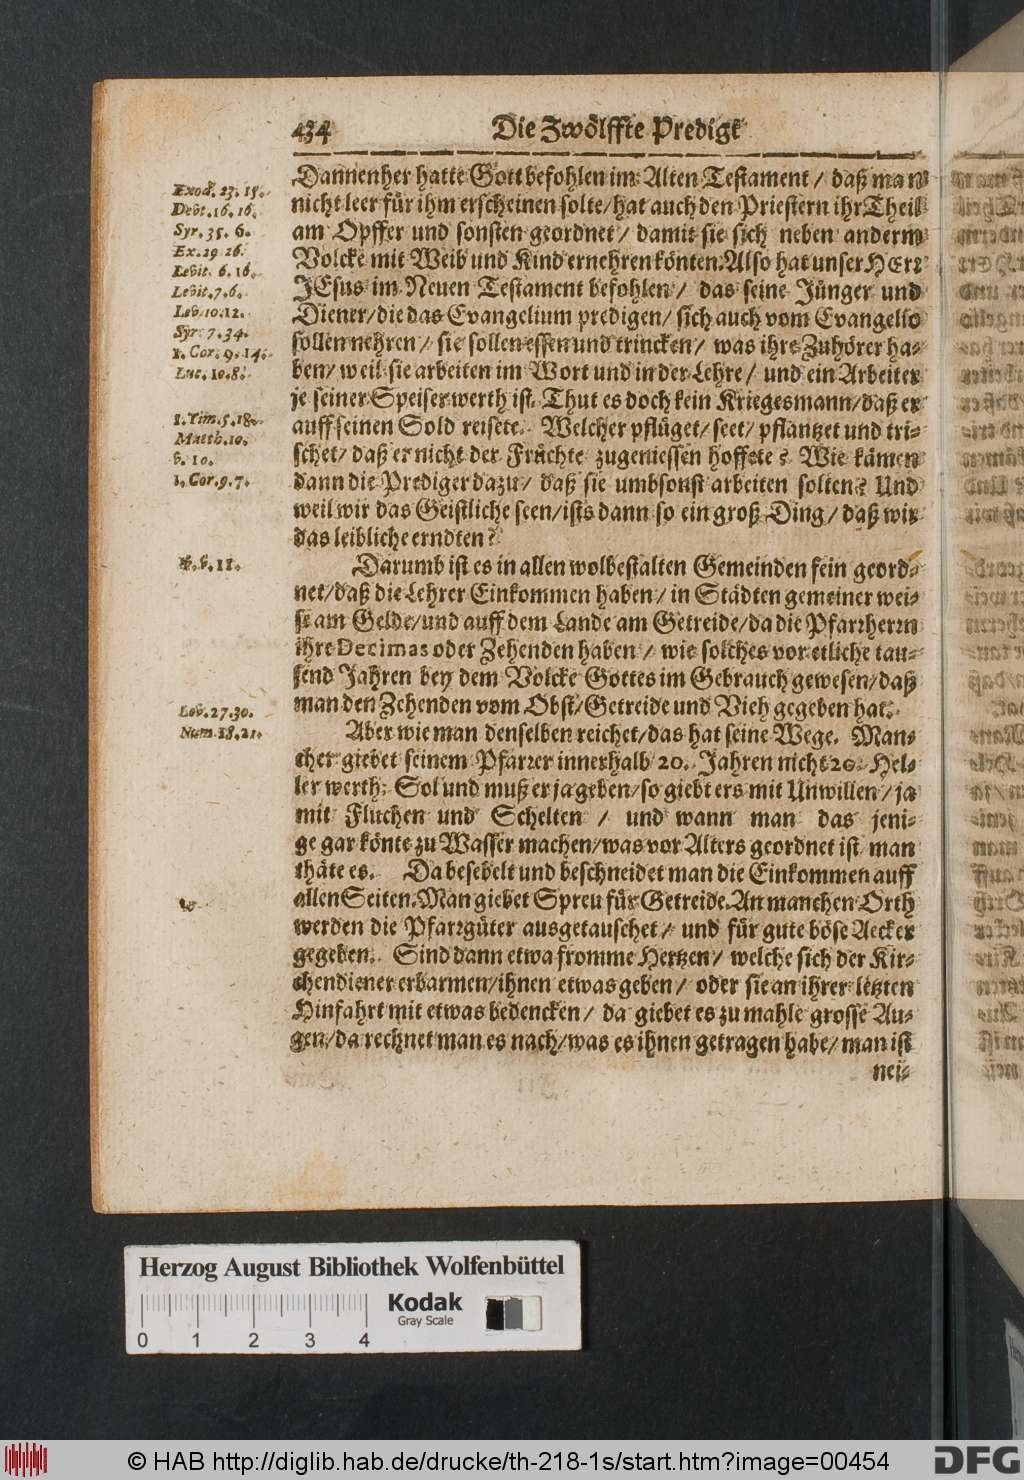 434 Die Zwölffte Predigt
Dannenher hatte Gott befohlen im Alten Testament / daß man
nicht leer für ihm erscheinen solte / hat auch den Priestern ihr Theil
am Opffer und sonsten geordnet / damit sie sich neben anderm
Volcke mit Weib und Kind ernehren könten. Also hat unser HErr
JEsus im Neuen Testament befohlen / das seine Jünger und
Diener / die das Evangelium predigen / sich auch vom Evangelio
sollen nehren / sie sollen essen und trincken / was ihre Zuhörer ha-
ben / weil sie arbeiten im Wort und in der Lehre / und ein Arbeiter
je seiner Speise werth ist. Thut es doch kein Kriegesmann / daß er
auff seinen Sold reisete. Welcher pflüget / seet / pflantzet und tri-
schet / daß er nicht der Früchte zugeniessen hoffete? Wie kämen
dann die Prediger dazu / daß sie umbsonst arbeiten solten? Und
weil wir das Geistliche seen / ists dann so ein groß Ding / daß wir
das leibliche erndten?
Darumb ist es in allen wolbestalten Gemeinden fein geord-
net / daß die Lehrer Einkommen haben / in Städten gemeiner wei-
se am Gelde / und auff dem Lande am Getreide / da die Pfarrherrn
ihre Decimas oder Zehenden haben / wie solches vor etliche tau-
send Jahren bey dem Volcke Gottes im Gebrauch gewesen / daß
man den Zehenden vom Obst / Getreide und Vieh gegeben hat.
Aber wie man denselben reichet / das hat seine Wege. Man-
cher giebet seinem Pfarrer innerhalb 20. Jahren nicht 20. Hel-
ler werth: Sol und muß er ja geben / so giebt ers mit Unwillen / ja
mit Fluchen und Schelten / und wann man das jeni-
ge gar könte zu Wasser machen / was vor Alters geordnet ist man
thäte es. Da besebelt und beschneidet man die Einkommen auff
allen Seiten. Man giebet Spreu für Getreide. An manchen Orth
werden die Pfarrgüter ausgetauschet / und für gute böse Aecker
gegeben. Sind dann etwa fromme Hertzen / welche sich der Kir-
chendiener erbarmen / ihnen etwas geben / oder sie an ihrer letzten
Hinfahrt mit etwas bedencken / da giebet es zu mahle grosse Au-
gen / da rechnet man es nach / was es ihnen getragen habe / man ist
nei-
Exod. 23. 15.
Devt. 16. 16.
Syr. 35. 6.
Ex. 29 26.
Levit. 6. 16.
Levit. 7. 6.
Lev. 10. 12.
Syr. 7. 34.
1. Cor. 9. 14.
Luc. 10. 8.
1. Tim. 5. 18.
Matth. 10.
v. 10.
1. Cor. 9. 7.
v. 11.
Lev. 27. 30.
Num. 18. 21.
Herzog August Bibliothek Wolfenbüttel
Kodak
Gray Scale
0 1 2 3 4
© HAB http://diglib.hab.de/drucke/th-218-1s/start.htm?image=00454
DFG